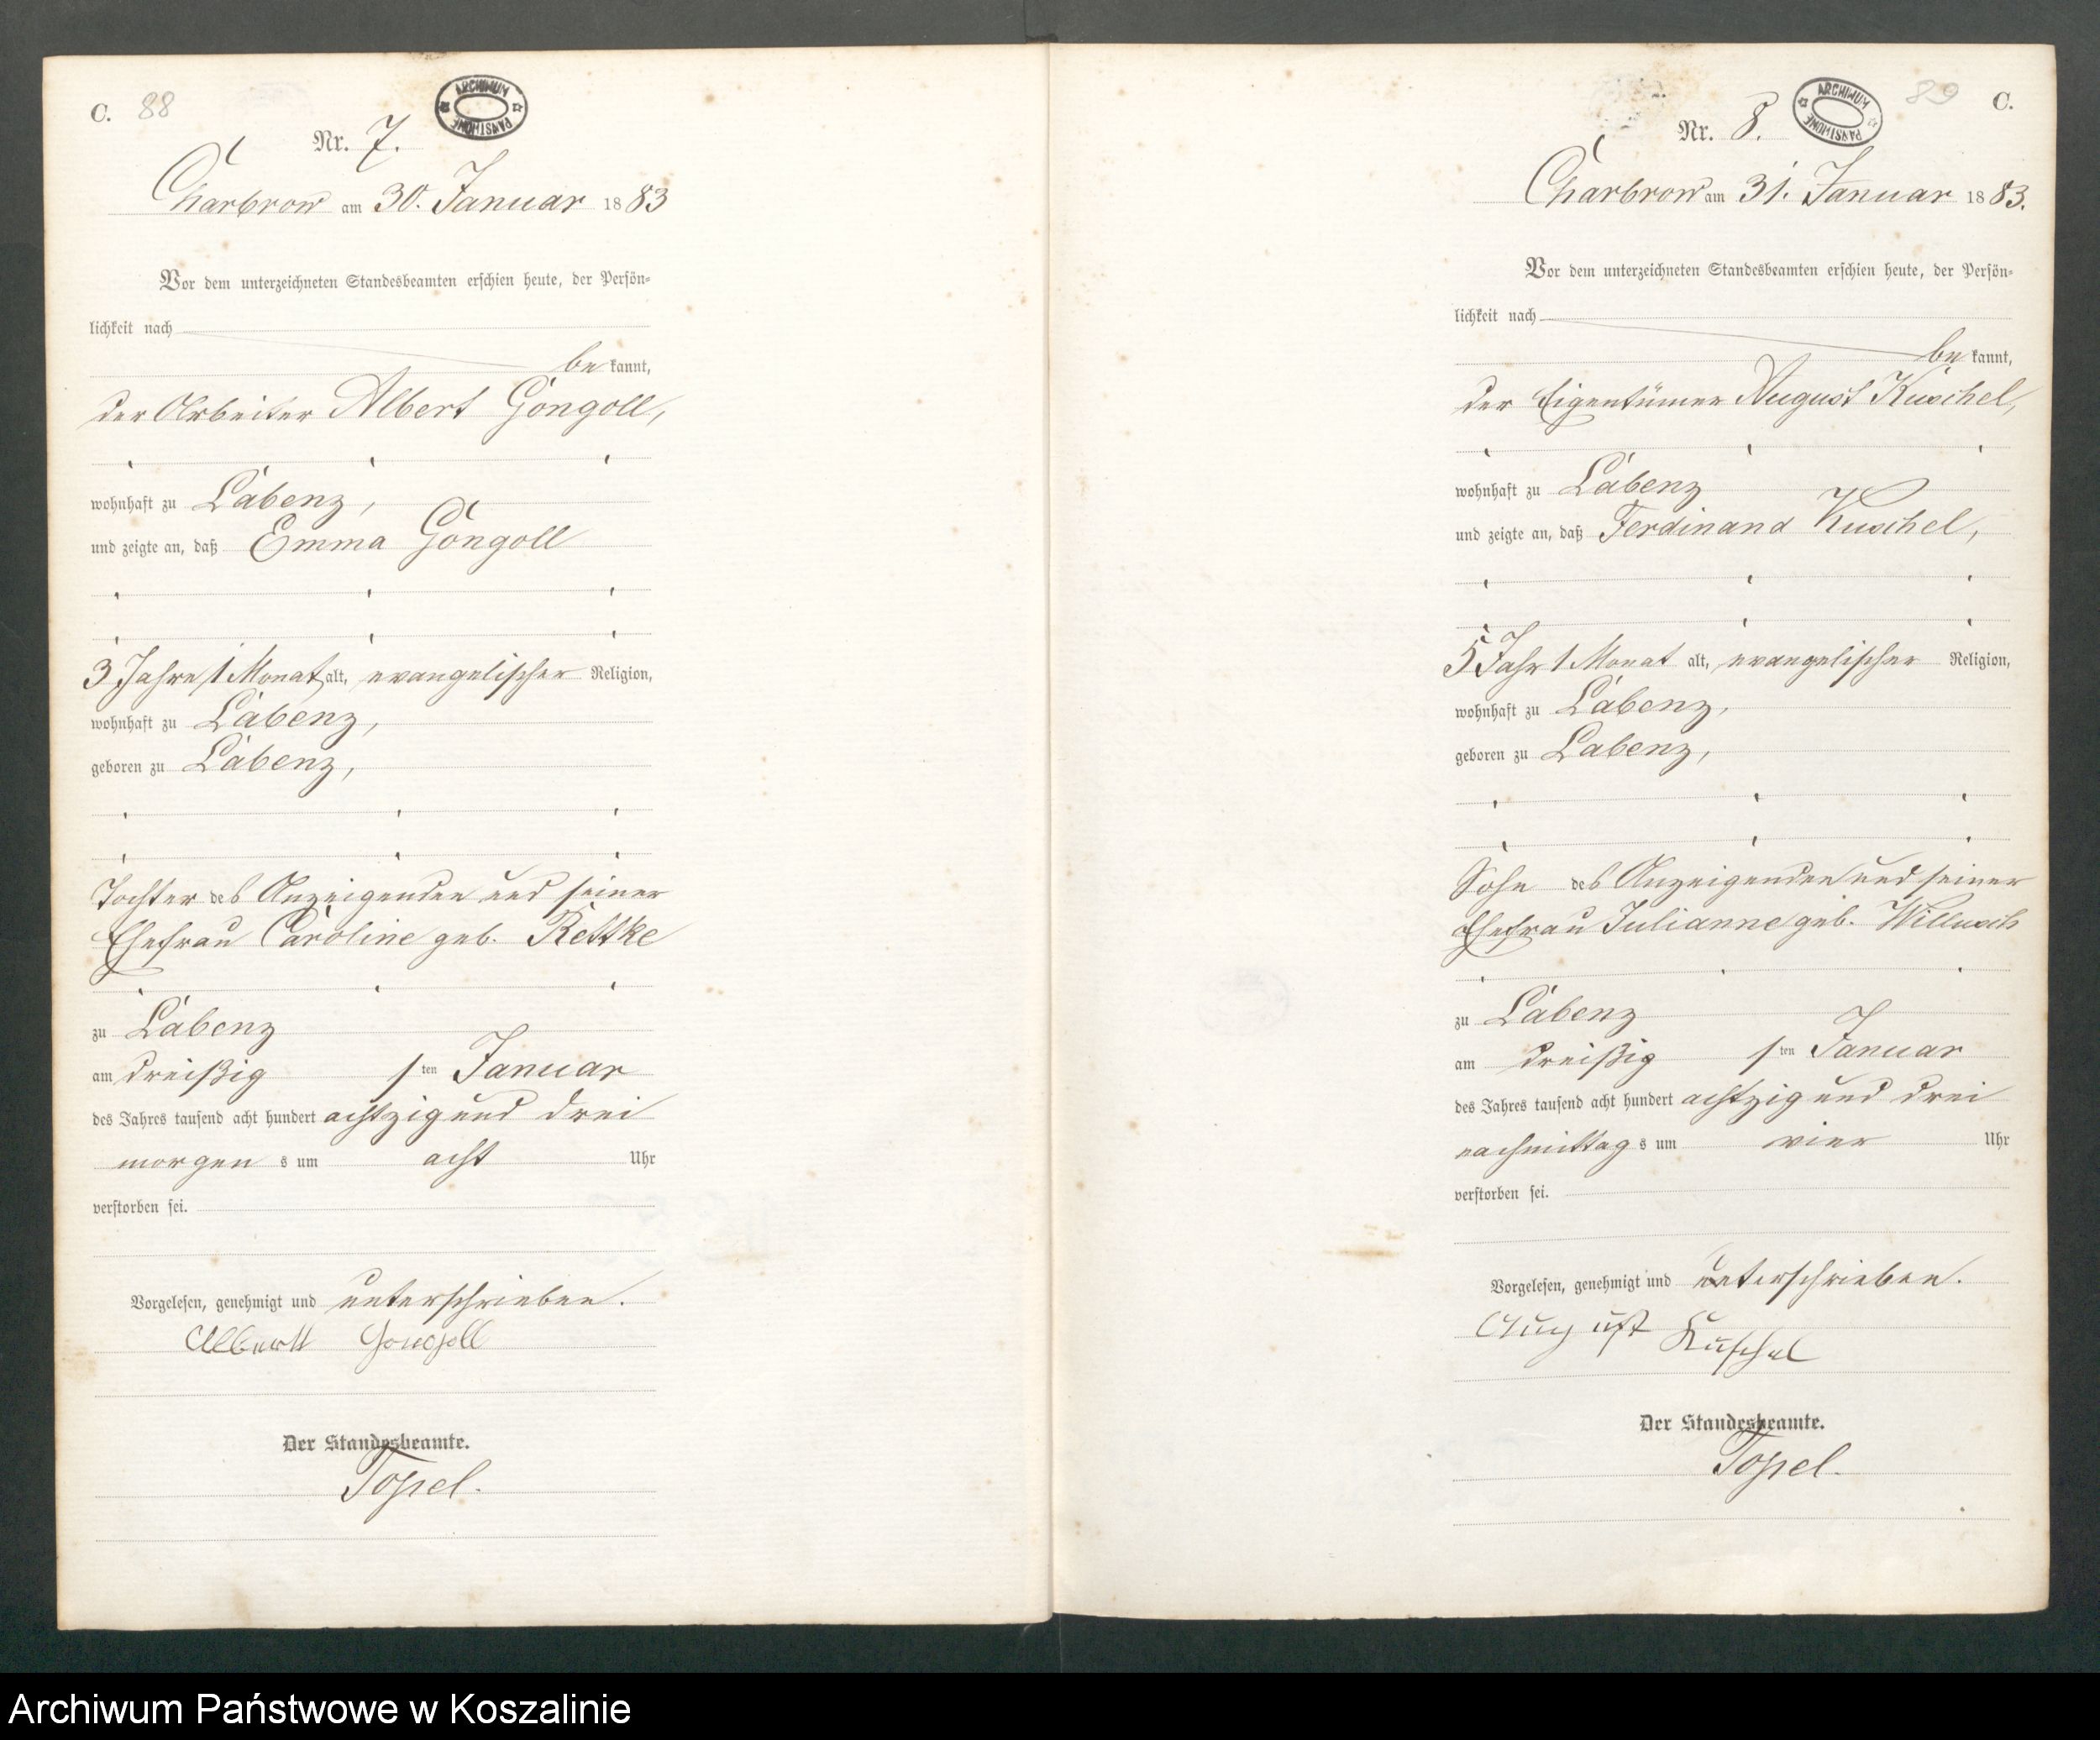 C. 88
ARCHIWUM PAŃSTWOWE
Nr. 7.
Charbrow am 30. Januar 1883
Vor dem unterzeichneten Standesbeamten erschien heute, der Persön-
lichkeit nach
bekannt,
der Arbeiter Albert Gongoll,
wohnhaft zu Labenz,
und zeigte an, daß Emma Gongoll
3 Jahre 1 Monat alt, evangelischer Religion,
wohnhaft zu Labenz,
geboren zu Labenz,
Tochter des Anzeigenden und seiner
Ehefrau Caroline geb. Rettke
zu Labenz
am dreißigsten Januar
des Jahres tausend acht hundert achtzig und drei
morgens um acht Uhr
verstorben sei.
Vorgelesen, genehmigt und unterschrieben.
Albertt Gongoll
Der Standesbeamte.
Topel.
89 C.
ARCHIWUM PAŃSTWOWE
Nr. 8.
Charbrow am 31. Januar 1883.
Vor dem unterzeichneten Standesbeamten erschien heute, der Persön-
lichkeit nach
bekannt,
der Eigentümer August Kuschel,
wohnhaft zu Labenz
und zeigte an, daß Ferdinand Kuschel,
5 Jahr 1 Monat alt, evangelischer Religion,
wohnhaft zu Labenz,
geboren zu Labenz,
Sohn des Anzeigenden und seiner
Ehefrau Julianne geb. Willusch
zu Labenz
am dreißigsten Januar
des Jahres tausend acht hundert achtzig und drei
nachmittags um vier Uhr
verstorben sei.
Vorgelesen, genehmigt und unterschrieben.
August Kuschel
Der Standesbeamte.
Topel.
Archiwum Państwowe w Koszalinie